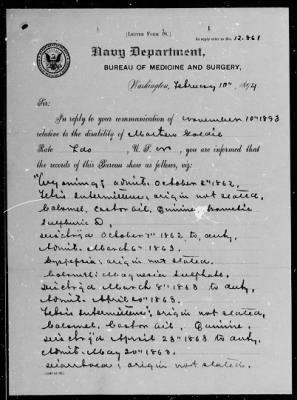 (LETTER FORM No.)
In reply refer to No. 12.861
Navy Department,
BUREAU OF MEDICINE AND SURGERY,
Washington, February 10th, 1894
Sir:
In reply to your communication of November 10th 1893
relative to the disability of Morten
Rate Lds U.S.N., you are informed that
the records of this Bureau show as follows, viz:
"Wyoming", admit. October 2nd 1862,
Febris Intermittens; origin not stated.
Calomel, Castor Oil, Quinine, Aromatic
Sulphuric D,
Disch'gd October 7th 1862, to duty,
Admit. March 6th 1863.
Dyspepsia; origin not stated.
Magnesia Sulphate.
Disch'gd March 8th 1863 to duty,
Admit. April 20th 1863.
Febris Intermittens; origin not stated,
Calomel, Castor Oil, Quinine.
Disch'gd April 28th 1863 to duty,
Admit. May 20th 1863.
Diarrhoea; origin not stated.